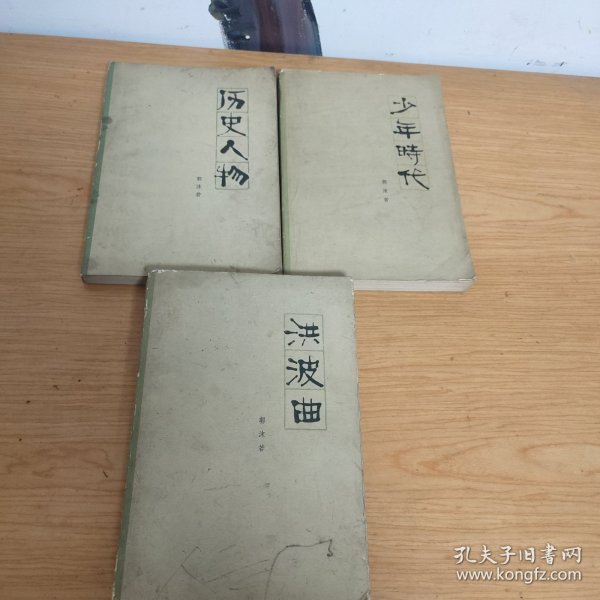 历史人物
郭沫若
少年時代
郭沫若
洪波曲
郭沫若
孔夫子旧书网
www.kongfz.com